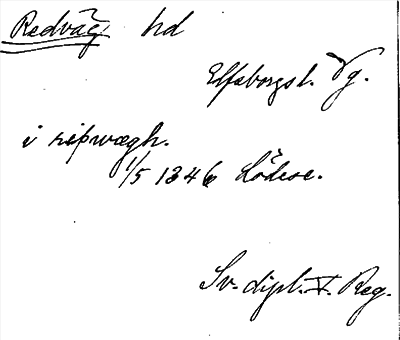 Redväg hd
Elfsborgsl. Vg.
i repwægh.
1/5 1346 Lödese.
Sv. dipl. V. Reg.